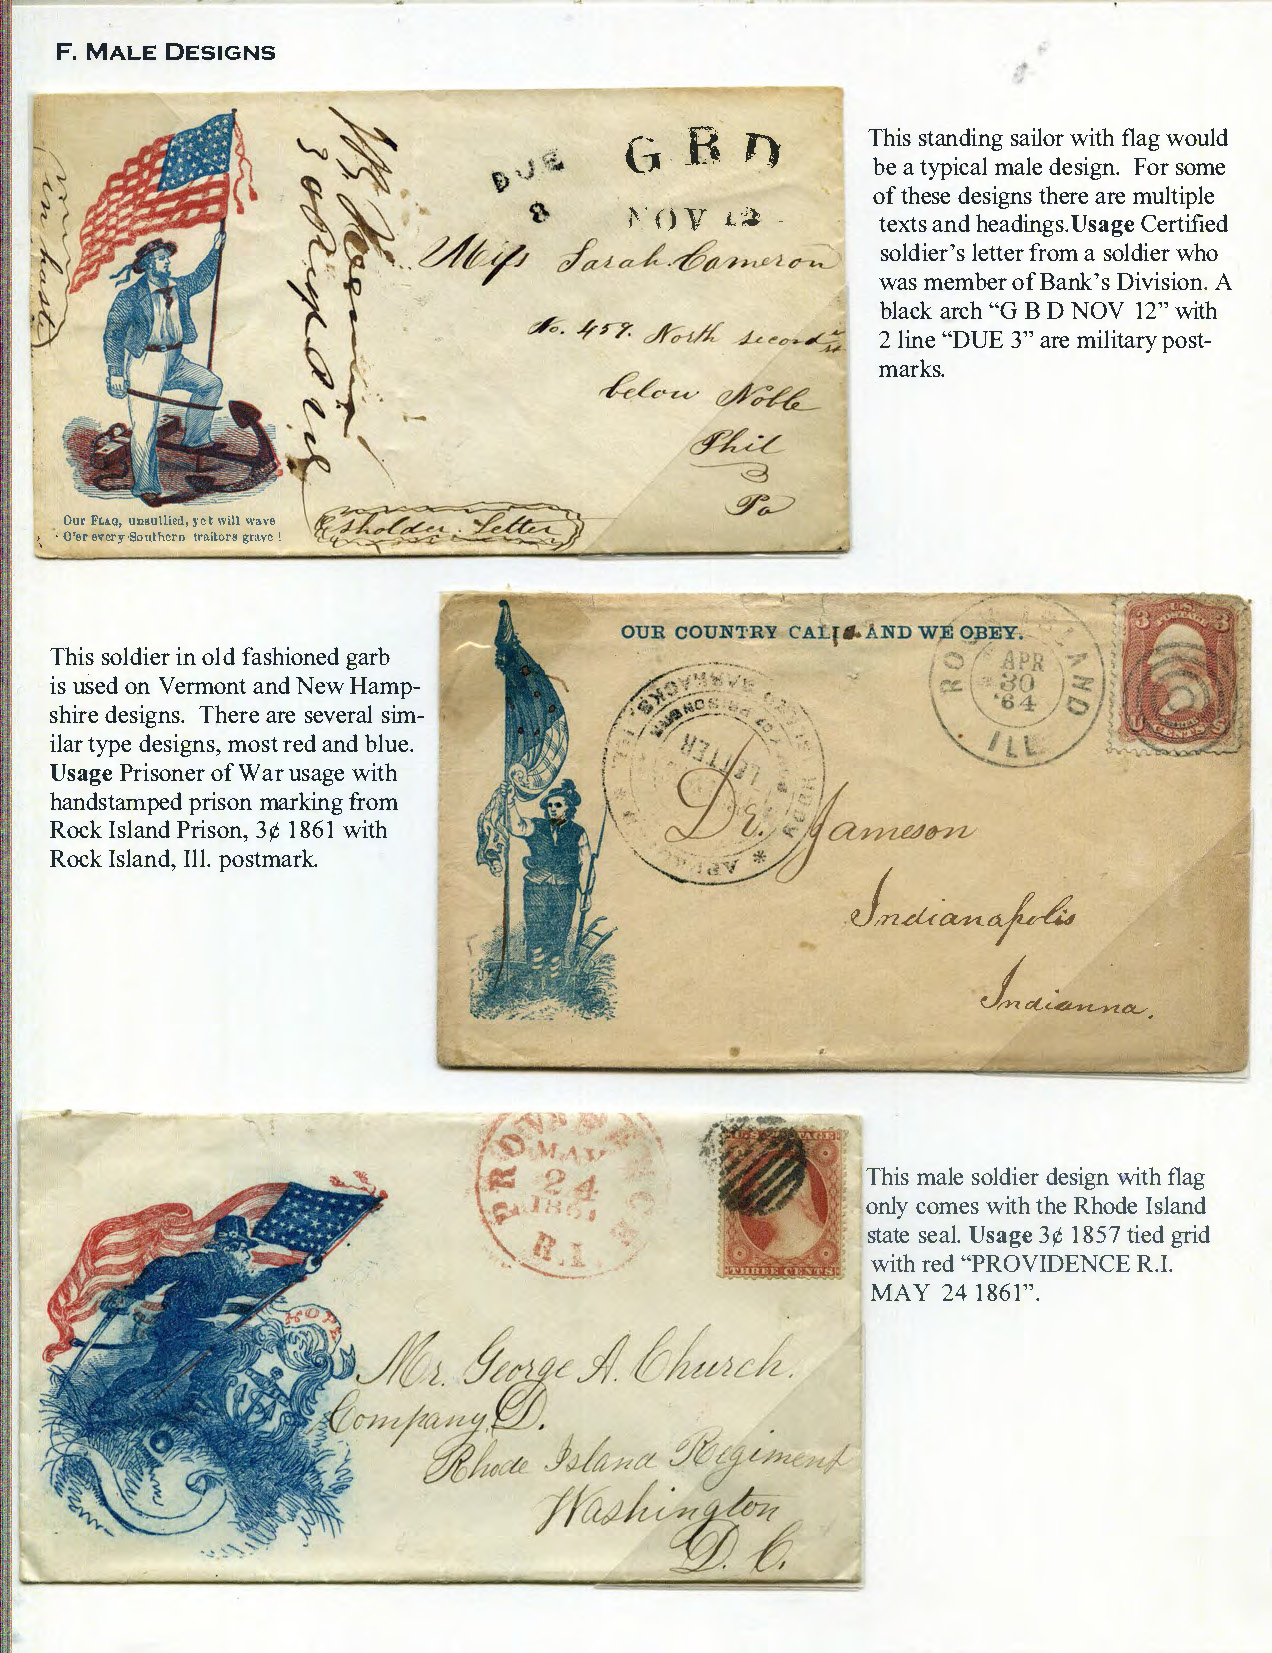 F. MALE DESIGNS
DUE
3
G B D
NOV 12
Miss Sarah Cameron
No. 459. North second
st
below Noble
Phil
Pa
Letter
OUR FLAG, unsullied, yet will wave
O'er every Southern traitors grave !
This standing sailor with flag would
be a typical male design. For some
of these designs there are multiple
texts and headings.Usage Certified
soldier's letter from a soldier who
was member of Bank's Division. A
black arch “G B D NOV 12” with
2 line “DUE 3” are military post-
marks.
This soldier in old fashioned garb
is used on Vermont and New Hamp-
shire designs. There are several sim-
ilar type designs, most red and blue.
Usage Prisoner of War usage with
handstamped prison marking from
Rock Island Prison, 3¢ 1861 with
Rock Island, Ill. postmark.
OUR COUNTRY CALLS AND WE OBEY.
ROCK ISLAND
APR
30
'64
ILL
3 3
U S
CENTS
PRISONERS
LETTER
BARRACKS
ILL
Dr. Jameson
Indianapolis
Indianna.
PROVIDENCE
MAY
24
1861
R.I.
U.S. POSTAGE
THREE CENTS
HOPE
Mr. George A. Church.
Company D.
Rhode Island Regiment
Washington
D. C.
This male soldier design with flag
only comes with the Rhode Island
state seal. Usage 3¢ 1857 tied grid
with red “PROVIDENCE R.I.
MAY 24 1861”.